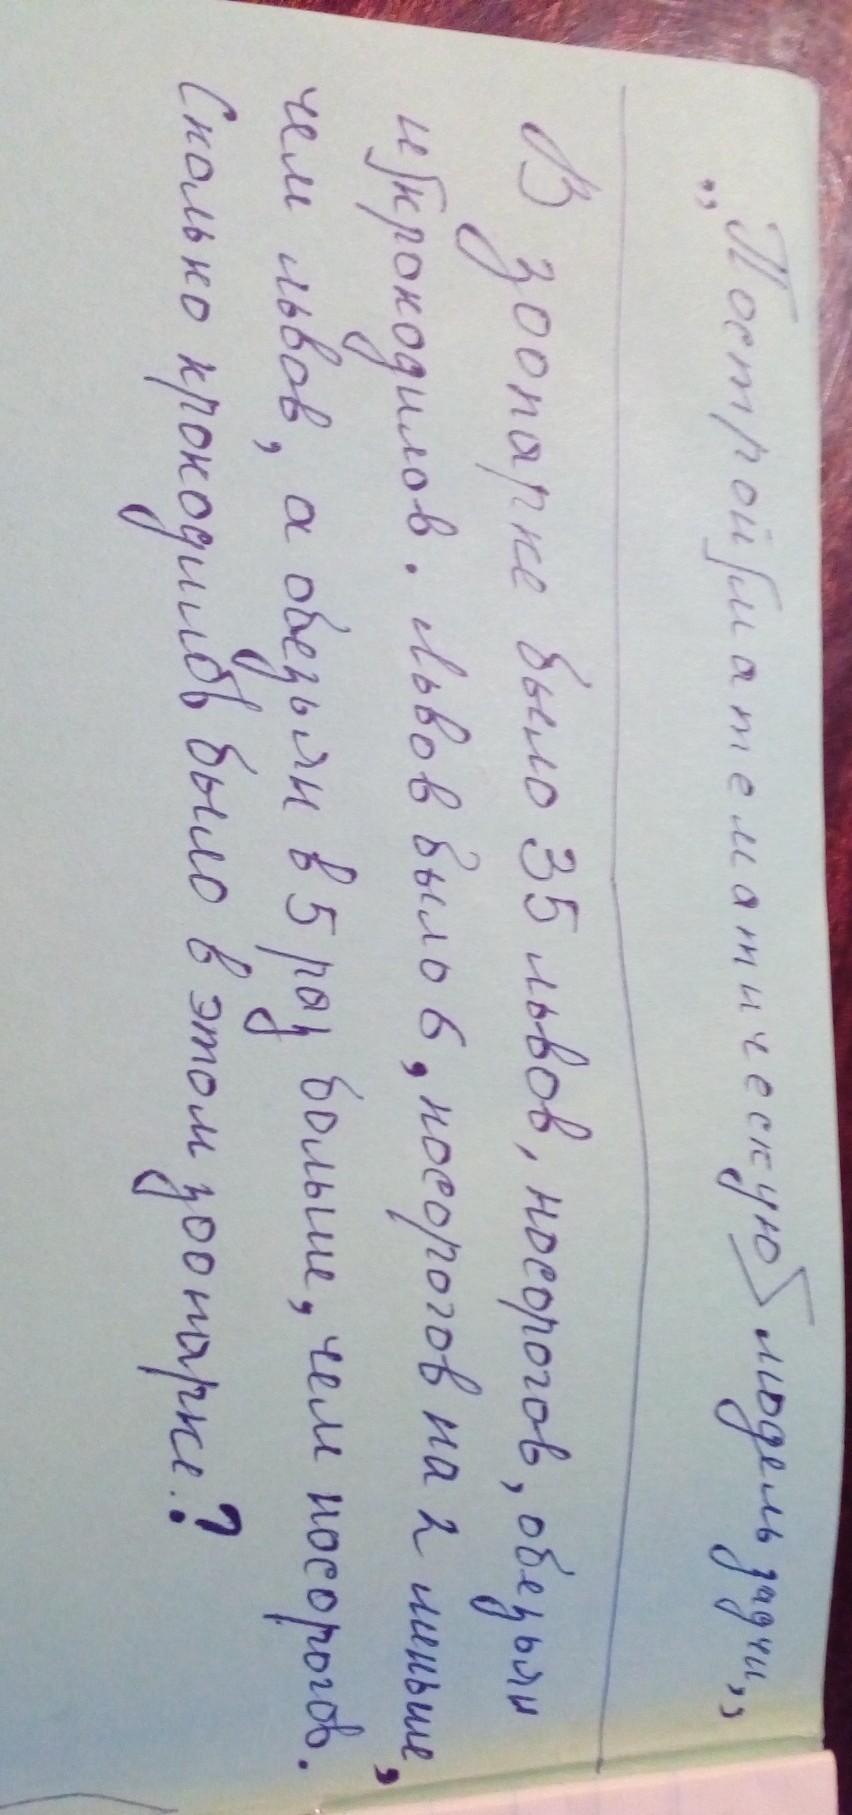 „Построй математическую модель задчи„
В зоопарке было 35 львов, носорогов, обезьян
и крокодилов. Львов было 6, носорогов на 2 меньше,
чем львов, а обезьян в 5 раз больше, чем носорогов.
Сколько крокодилов было в этом зоопарке?